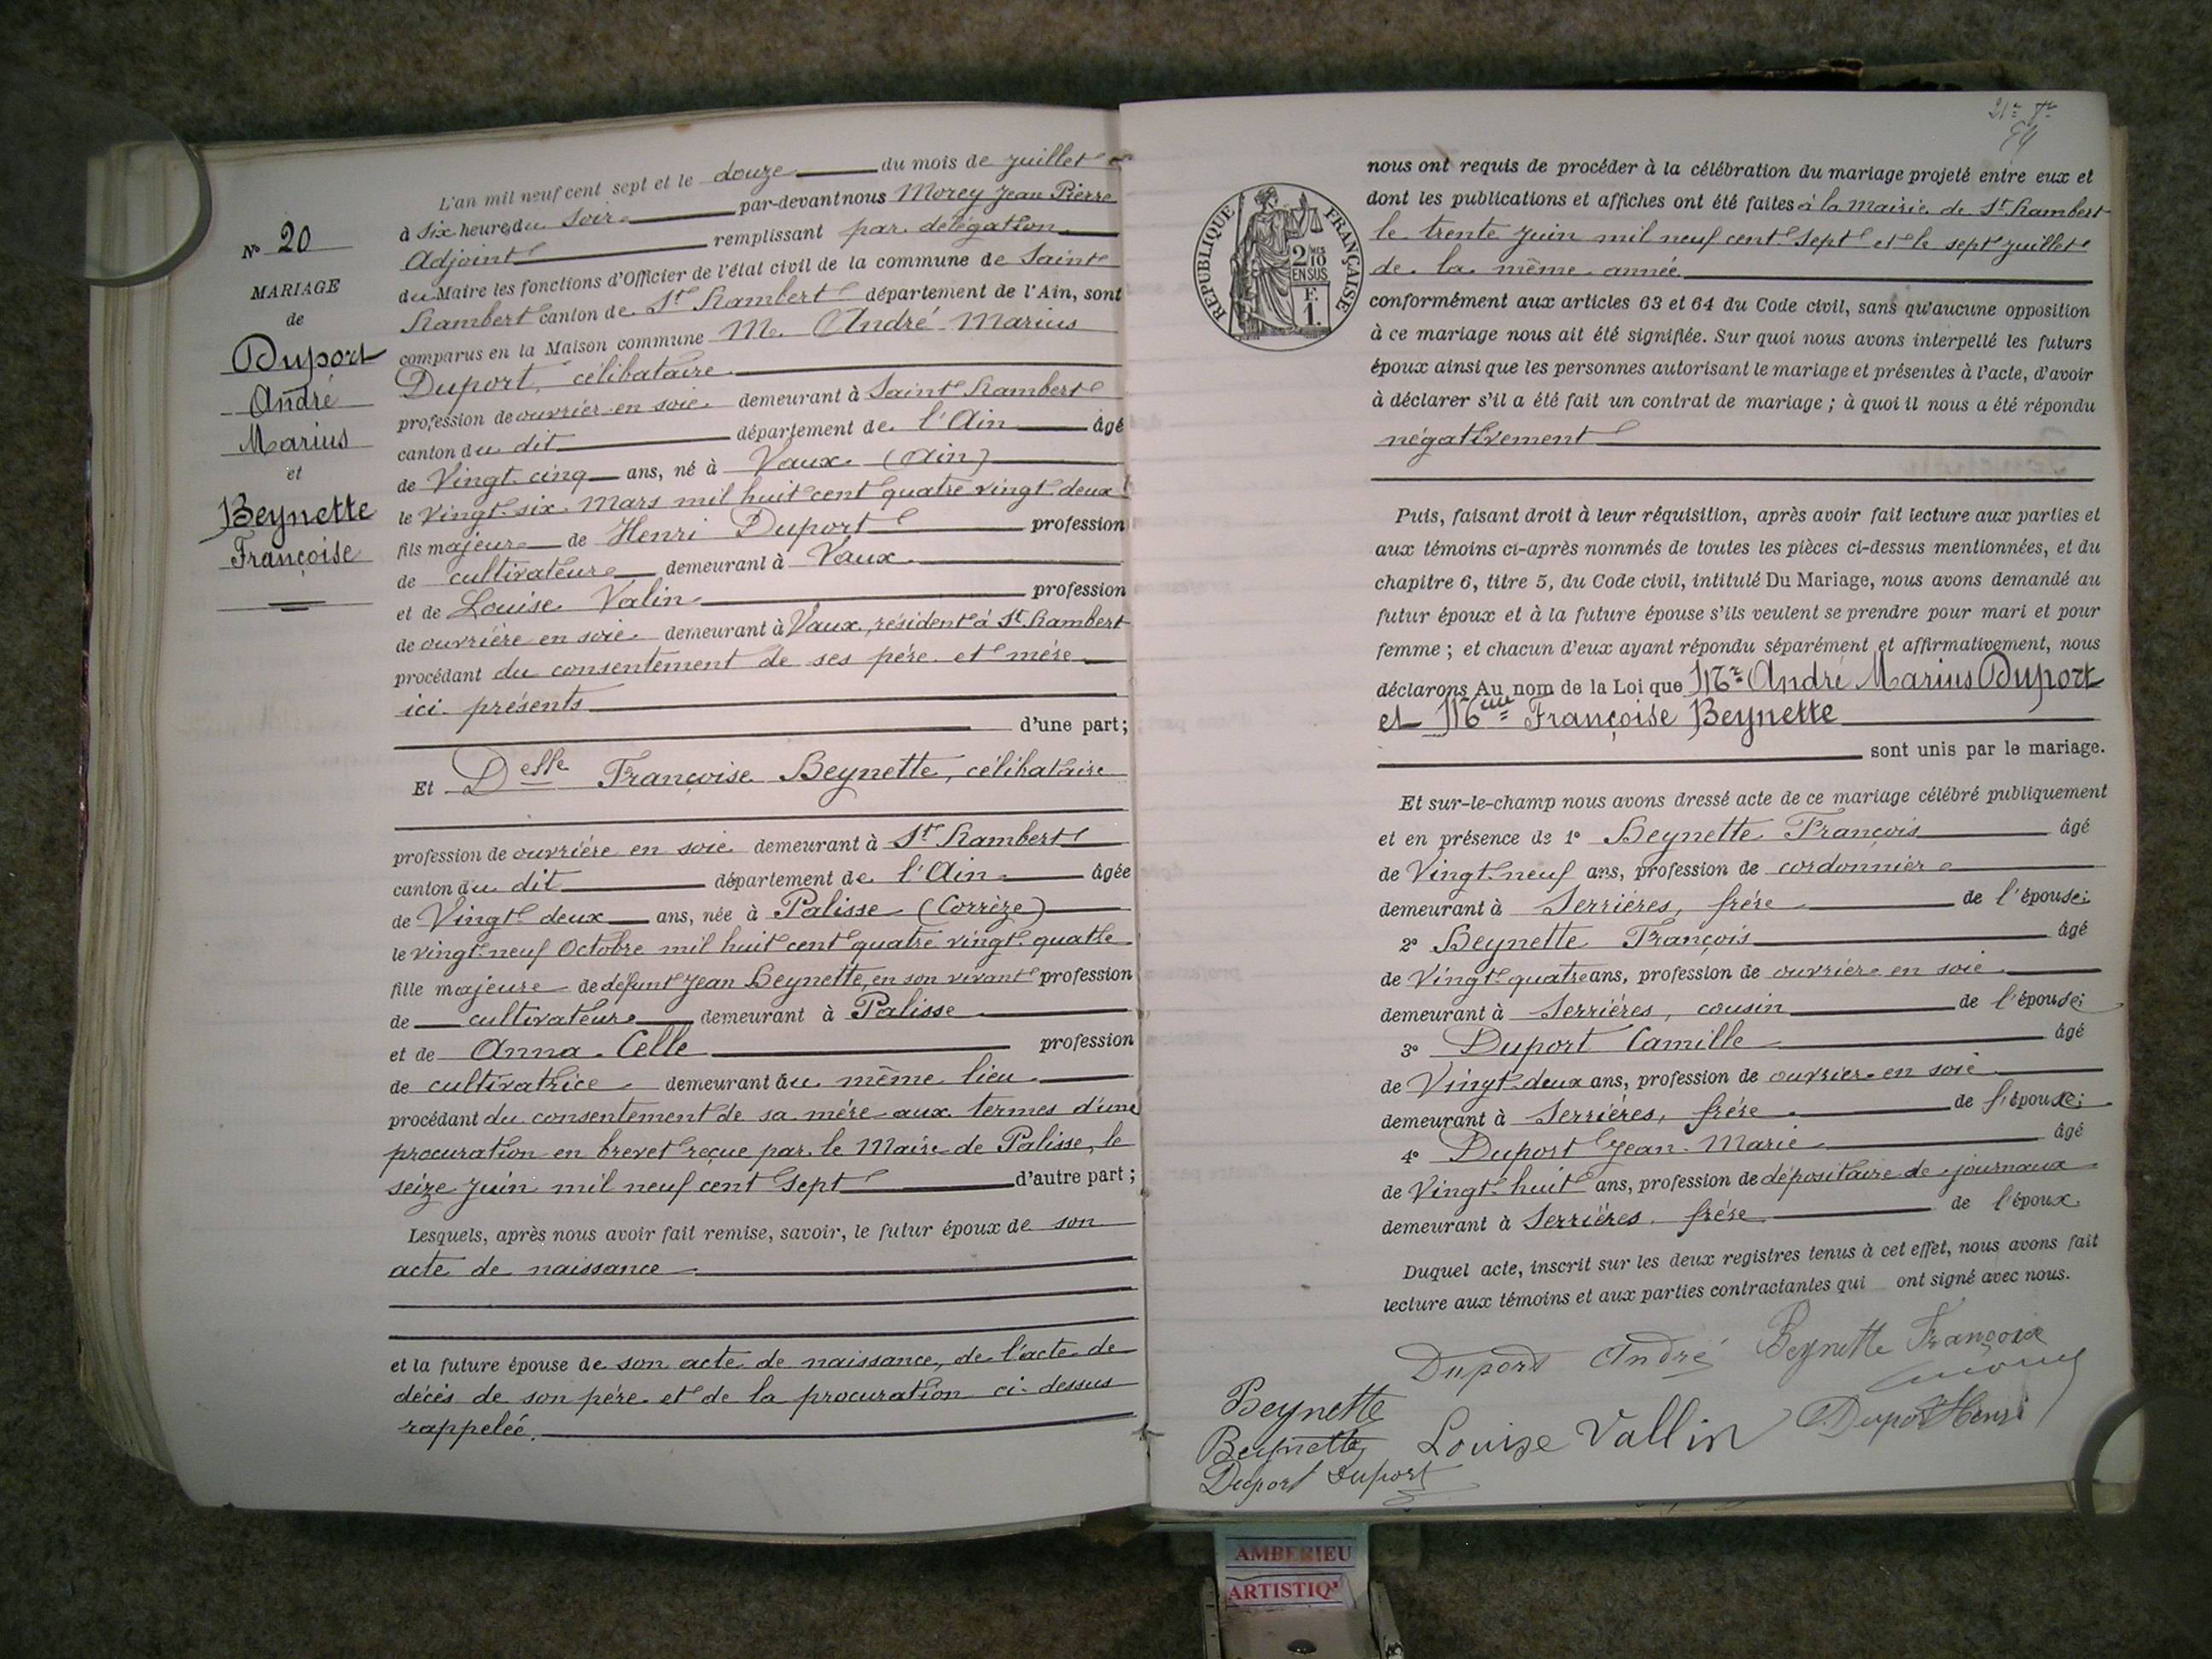 L'an mil neuf cent sept et le douze du mois de juillet
à six heures du soir par-devant nous Morey Jean Pierre
Adjoint remplissant par délégation
du Maire les fonctions d'Officier de l'état civil de la commune de Saint
Rambert canton de St Rambert département de l'Ain, sont
comparus en la Maison commune Mr. André Marius
Duport, célibataire
profession de ouvrier en soie demeurant à Saint Rambert
canton du dit département de l'Ain âgé
de Vingt cinq ans, né à Vaux (Ain)
le Vingt-six Mars mil huit cent quatre vingt deux
fils majeur de Henri Duport profession
de cultivateur demeurant à Vaux
et de Louise Valin profession
de ouvrière en soie demeurant à Vaux, résident à St Rambert
procédant du consentement de ses père et mère
ici présents
d'une part;
Et Delle Françoise Beynette, célibataire
profession de ouvrière en soie demeurant à St Rambert
canton du dit département de l'Ain âgée
de Vingt deux ans, née à Palisse (Corrèze)
le vingt-neuf Octobre mil huit cent quatre vingt-quatre
fille majeure de défunt Jean Beynette, en son vivant profession
de cultivateur demeurant à Palisse
et de Anna Celle profession
de cultivatrice demeurant au même lieu
procédant du consentement de sa mère aux termes d'une
procuration en brevet reçue par le Maire de Palisse, le
seize juin mil neuf cent sept d'autre part;
Lesquels, après nous avoir fait remise, savoir, le futur époux de son
acte de naissance
et la future épouse de son acte de naissance, de l'acte de
décès de son père et de la procuration ci-dessus
rappelée.
No 20
MARIAGE
de
Duport
André
Marius
et
Beynette
Françoise
nous ont requis de procéder à la célébration du mariage projeté entre eux et
dont les publications et affiches ont été faites à la Mairie de St Rambert
le trente juin mil neuf cent sept et le sept juillet
de la même année
conformément aux articles 63 et 64 du Code civil, sans qu'aucune opposition
à ce mariage nous ait été signifiée. Sur quoi nous avons interpellé les futurs
époux ainsi que les personnes autorisant le mariage et présentes à l'acte, d'avoir
à déclarer s'il a été fait un contrat de mariage; à quoi il nous a été répondu
négativement
RÉPUBLIQUE FRANÇAISE
2 MES
10
EN SUS
F.
1.
Puis, faisant droit à leur réquisition, après avoir fait lecture aux parties et
aux témoins ci-après nommés de toutes les pièces ci-dessus mentionnées, et du
chapitre 6, titre 5, du Code civil, intitulé Du Mariage, nous avons demandé au
futur époux et à la future épouse s'ils veulent se prendre pour mari et pour
femme; et chacun d'eux ayant répondu séparément et affirmativement, nous
déclarons Au nom de la Loi que Mr André Marius Duport
et Melle Françoise Beynette
sont unis par le mariage.
Et sur-le-champ nous avons dressé acte de ce mariage célébré publiquement
et en présence de 1° Beynette François âgé
de Vingt-neuf ans, profession de cordonnier
demeurant à Serrières, frère de l'épouse;
2° Beynette François âgé
de Vingt quatre ans, profession de ouvrier en soie
demeurant à Serrières, cousin de l'épouse;
3° Duport Camille âgé
de Vingt-deux ans, profession de ouvrier en soie
demeurant à Serrières, frère de l'épouse;
4° Duport Jean-Marie âgé
de Vingt-huit ans, profession de dépositaire de journaux
demeurant à Serrières frère de l'époux
Duquel acte, inscrit sur les deux registres tenus à cet effet, nous avons fait
lecture aux témoins et aux parties contractantes qui ont signé avec nous.
Duport André Beynette Françoise
Beynette
Beynette Louise Vallin Duport Henri
Duport Duport
AMBERIEU
ARTISTIQ'